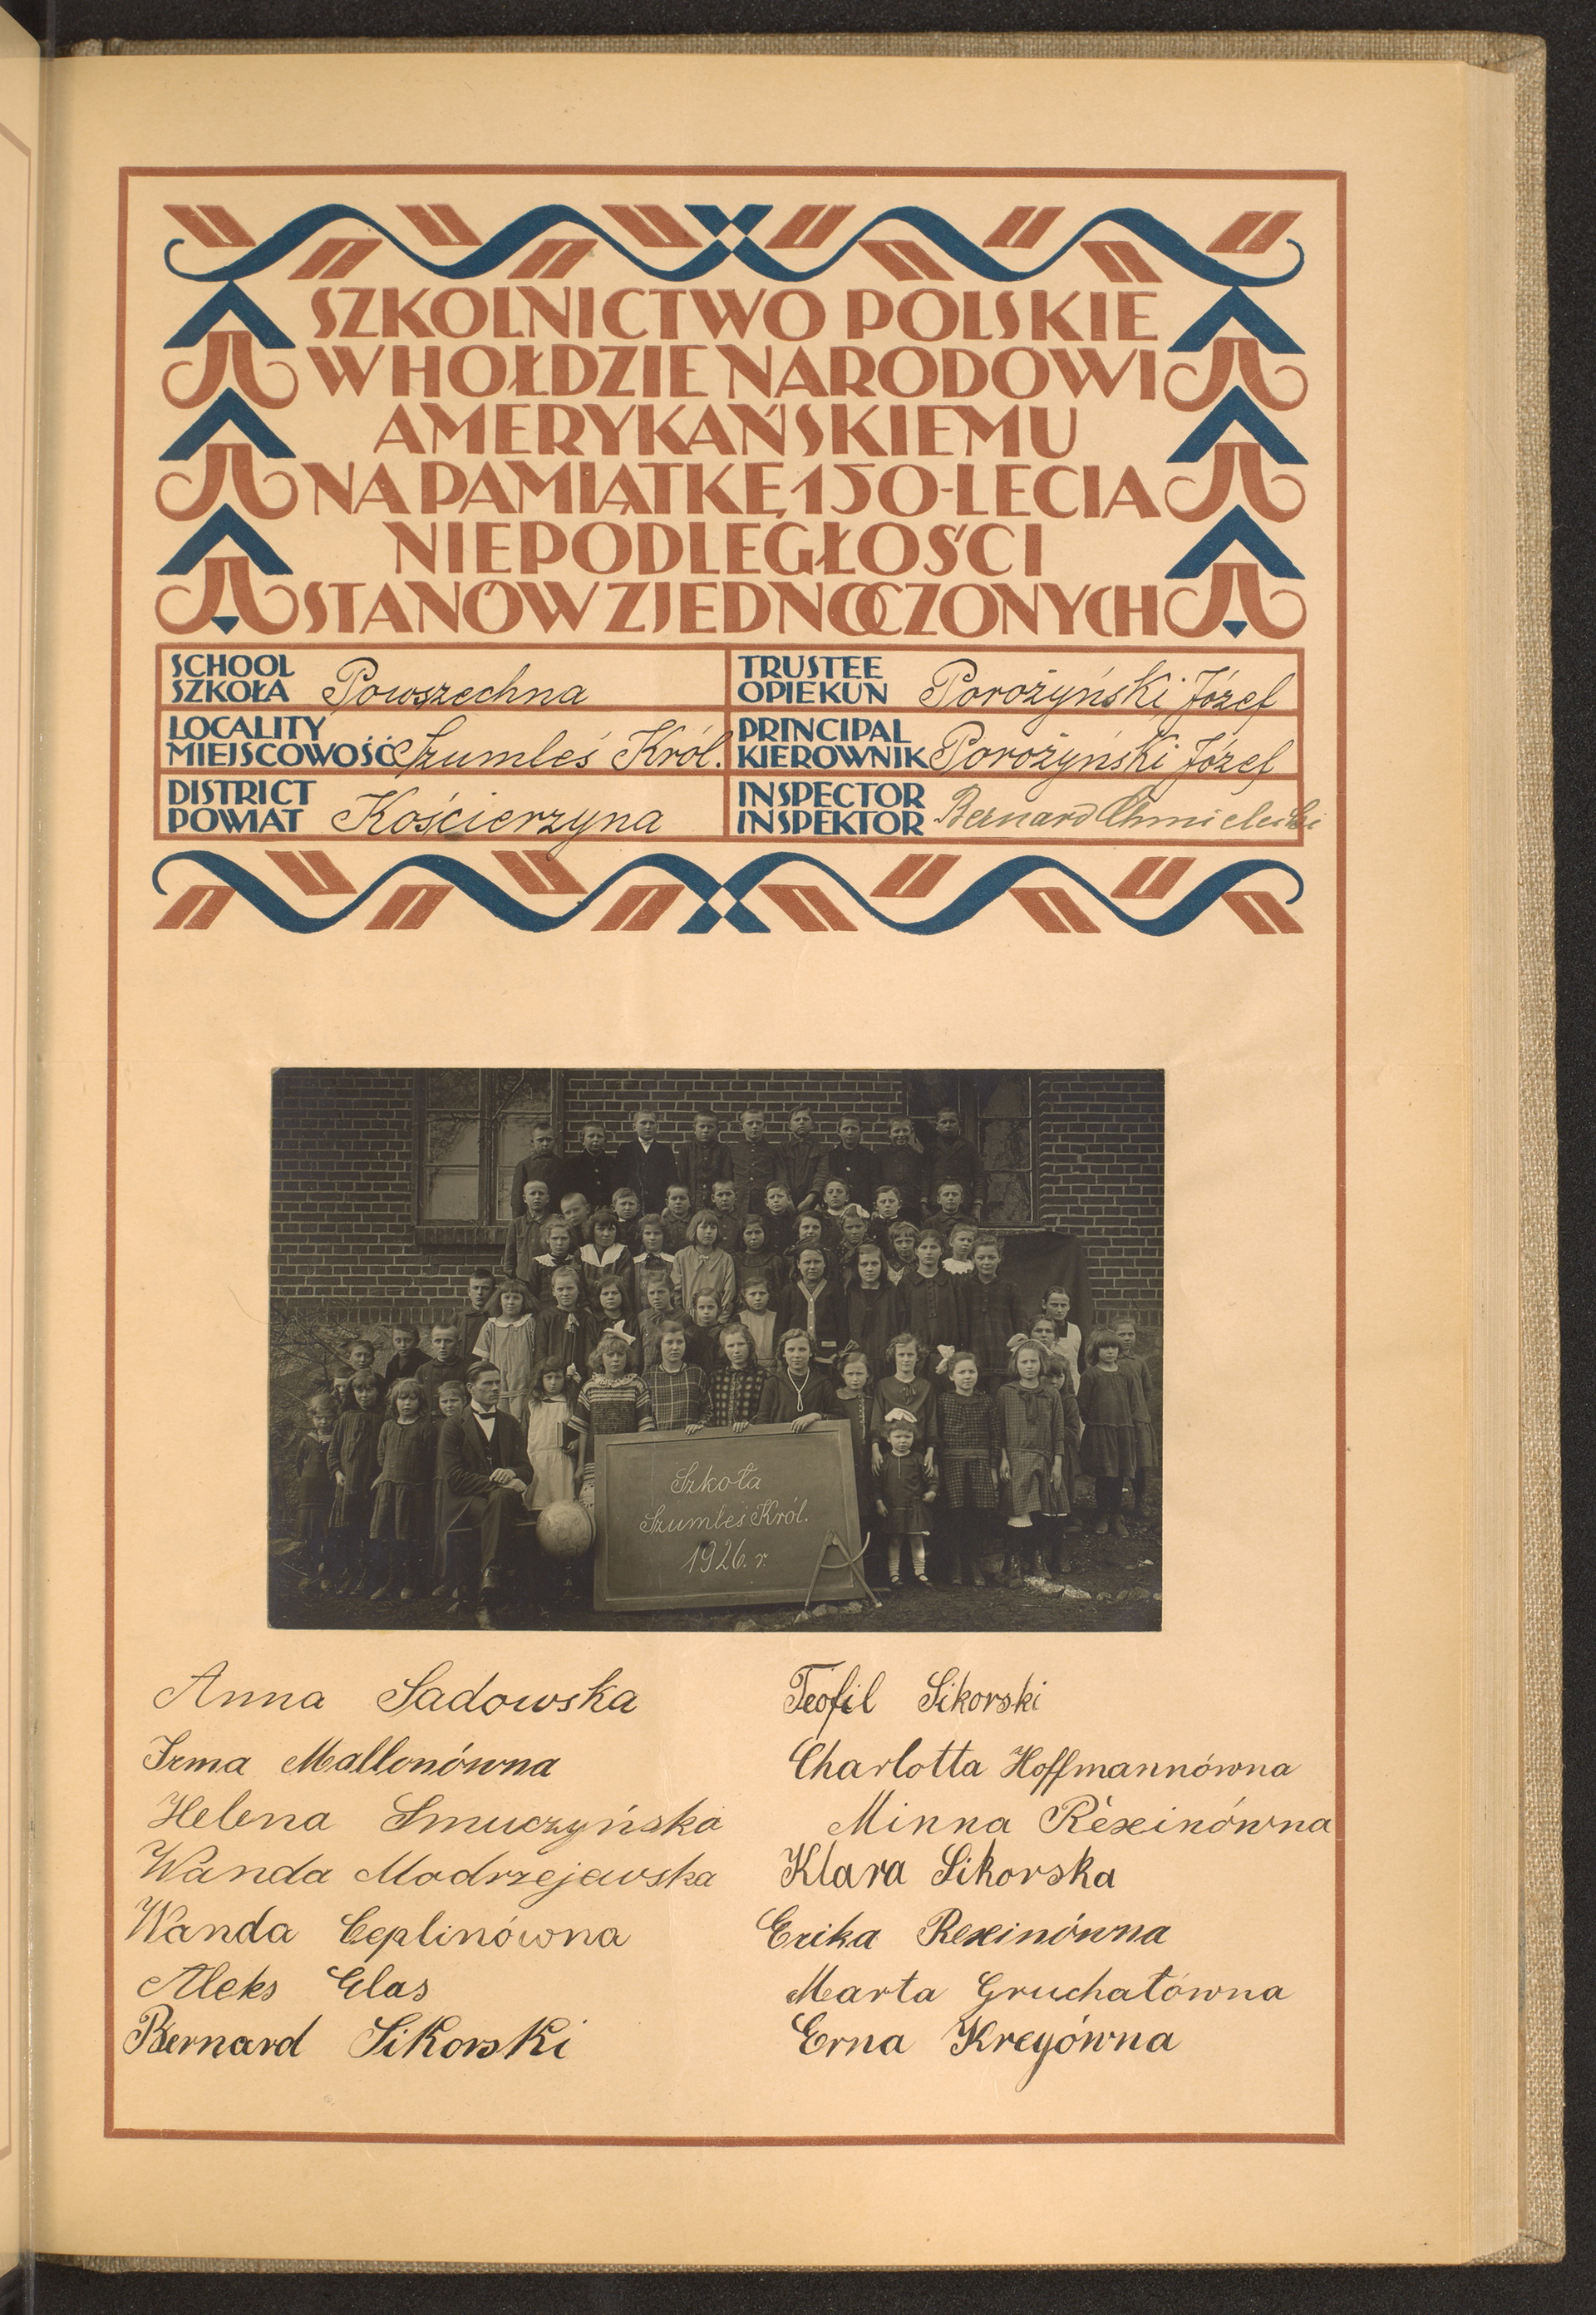 SZKOLNICTWO POLSKIE
W HOŁDZIE NARODOWI
AMERYKAŃSKIEMU
NA PAMIĄTKĘ 150-LECIA
NIEPODLEGŁOŚCI
STANÓW ZJEDNOCZONYCH
SCHOOL
SZKOŁA Powszechna
TRUSTEE
OPIEKUN Porożyński Józef
LOCALITY
MIEJSCOWOŚĆ Szumleś Król.
PRINCIPAL
KIEROWNIK Porożyński Józef
DISTRICT
POWIAT Kościerzyna
INSPECTOR
INSPEKTOR Bernard Chmielecki
Szkoła
Szumleś Król.
1926. r.
Anna Sadowska
Irma Mallonówna
Helena Smuczyńska
Wanda Modrzejewska
Wanda Ceplinówna
Aleks Glas
Bernard Sikorski
Teofil Sikorski
Charlotta Hoffmannówna
Minna Rèxinówna
Klara Sikorska
Erika Rexinówna
Marta Gruchałówna
Erna Kreyówna